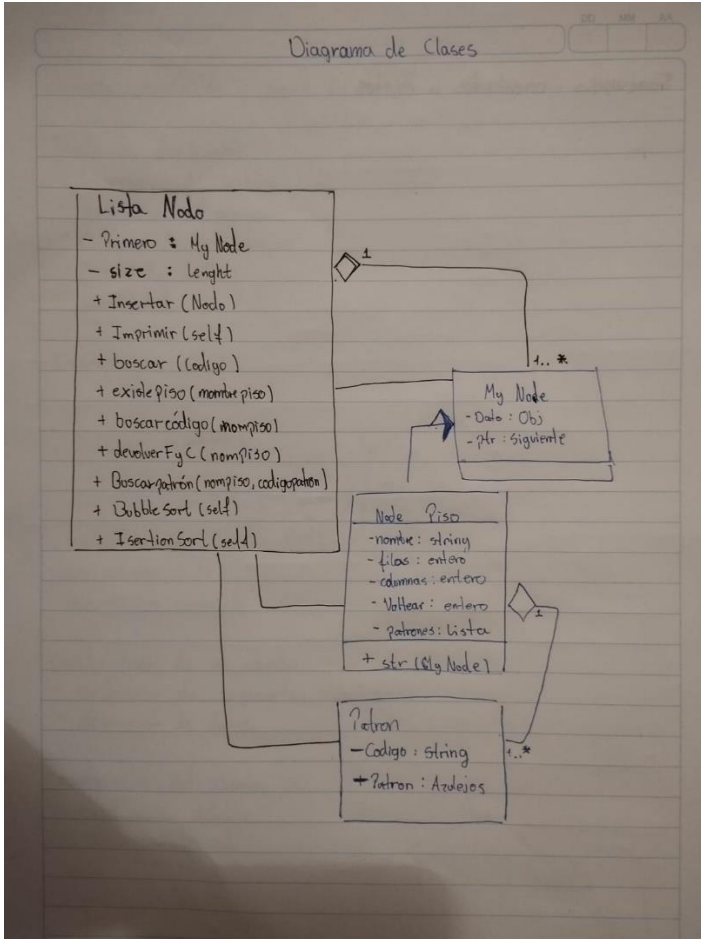 DD MM AA
Diagrama de Clases
Lista Nodo
- Primero : My Node
- size : lenght
+ Insertar (Nodo)
+ Imprimir (self)
+ buscar (codigo)
+ existepiso (nombrepiso)
+ buscarcódigo (nompiso)
+ devolverFyC (nompiso)
+ Buscarpatrón (nompiso, codigopatron)
+ Bubble Sort (self)
+ Isertion Sort (self)
1
1..*
My Node
- Dato : Obj
- ptr : siguiente
Node Piso
- nombre : string
- filas : entero
- columnas : entero
- Voltear : entero
- patrones : Lista
+ str (My Node)
1
Patron
- Codigo : string
+ Patron : Azulejos
1..*